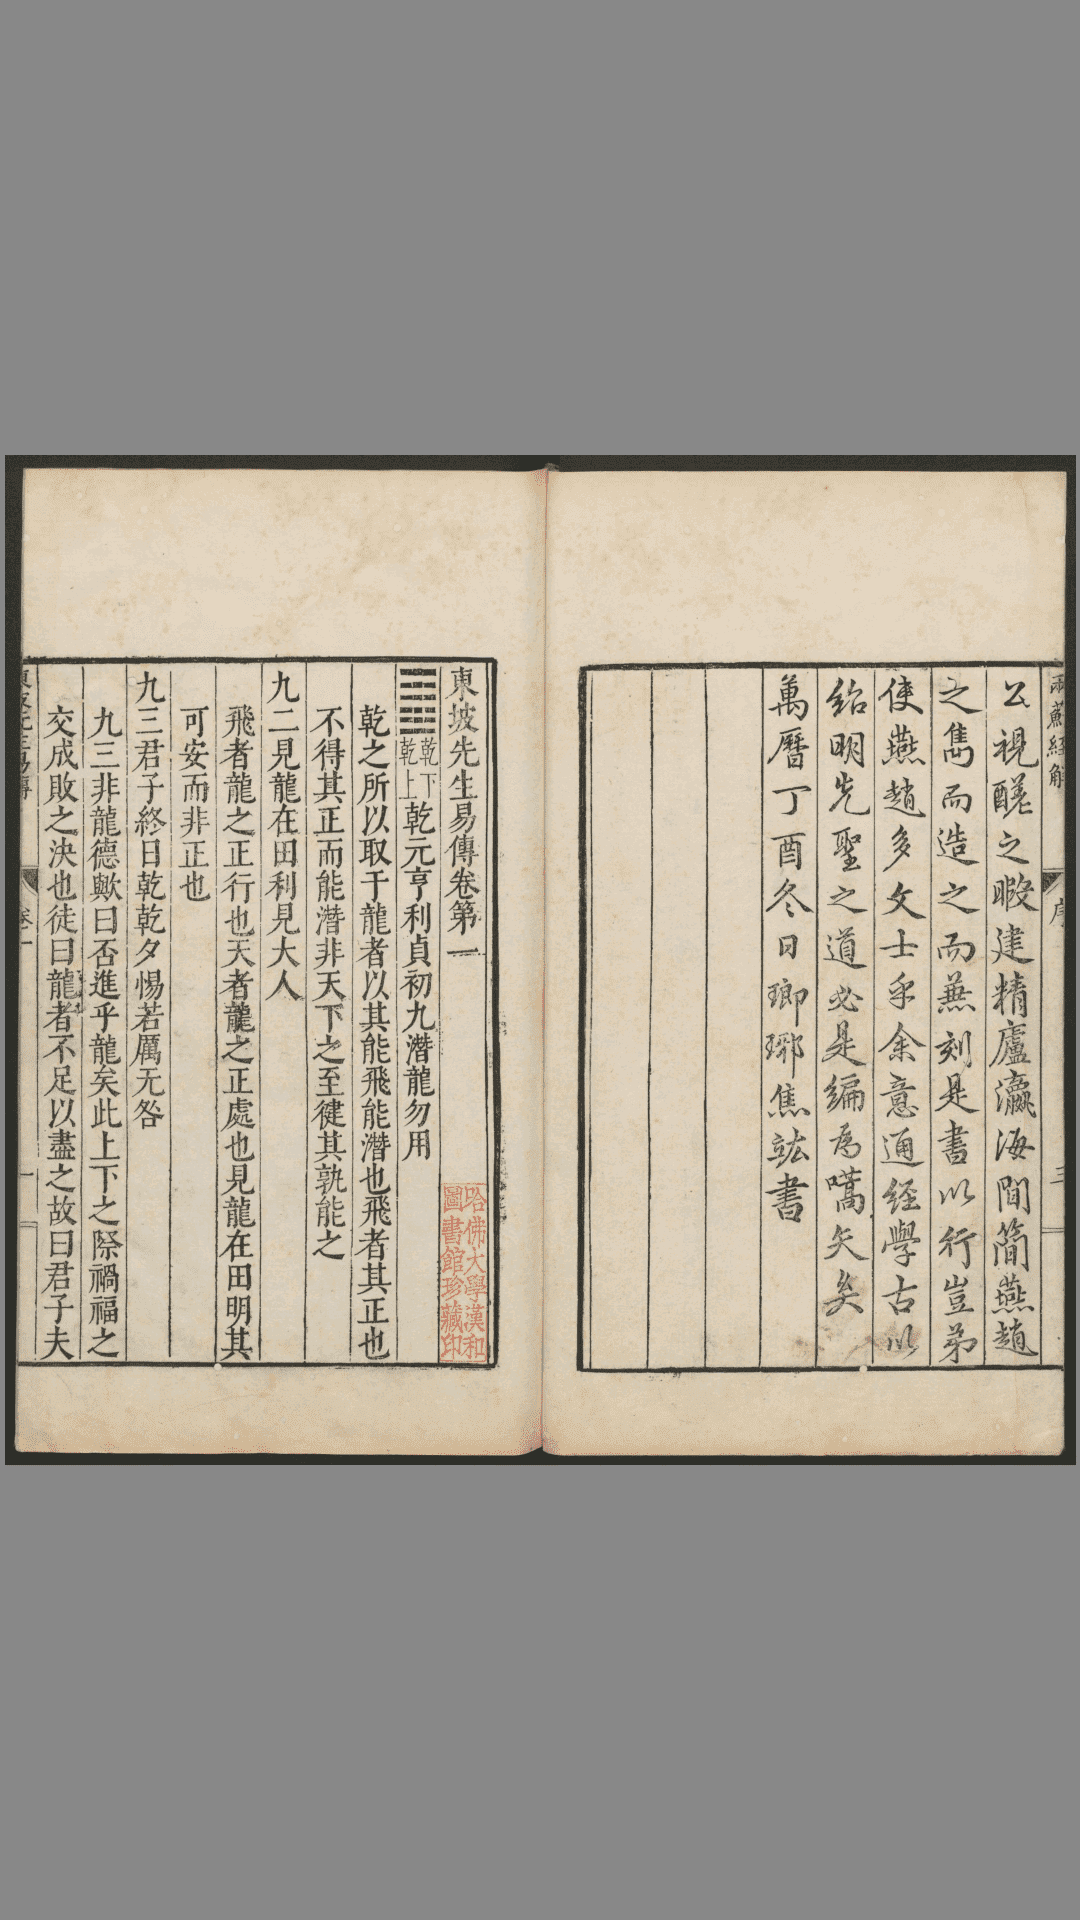 兩蘇經解
序
三
公視醝之暇建精廬瀛海間簡燕趙
之雋而造之而無刻是書以行豈弟
使燕趙多文士乎余意通經學古以
紹明先聖之道必是編為嚆矢矣
萬曆丁酉冬日瑯琊焦竑書
東坡先生易傳卷第一
乾下
乾上
乾元亨利貞初九潛龍勿用
乾之所以取于龍者以其能飛能潛也飛者其正也
不得其正而能潛非天下之至健其孰能之
九二見龍在田利見大人
飛者龍之正行也天者龍之正處也見龍在田明其
可安而非正也
九三君子終日乾乾夕惕若厲无咎
九三非龍德歟曰否進乎龍矣此上下之際禍福之
交成敗之決也徒曰龍者不足以盡之故曰君子夫
東坡先生易傳
卷一
一
哈佛大學漢和
圖書館珍藏印